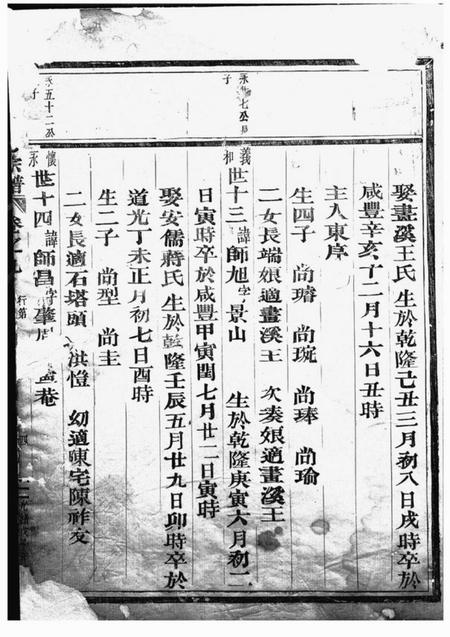 娶畫溪王氏 生於乾隆己丑三月初八日戌時卒於
咸豐辛亥十二月十六日丑時
主入東序
生四子 尚璿 尚琔 尚琫 尚瑜
二女長端娘適畫溪王 次湊娘適畫溪王
永七公
子
義
和
世十三 諱師旭字景山 生於乾隆庚寅六月初二
日寅時卒於咸豐甲寅閏七月廿二日寅時
娶安儒蔣氏 生於乾隆壬辰五月廿九日卯時卒於
道光丁未正月初七日酉時
生二子 尚型 尚圭
二女長適石塔頭 洪愷 幼適陳宅陳祚友
永五十二公
子
懷
永
世十四 諱師昌字肇 菴
宗譜
行第